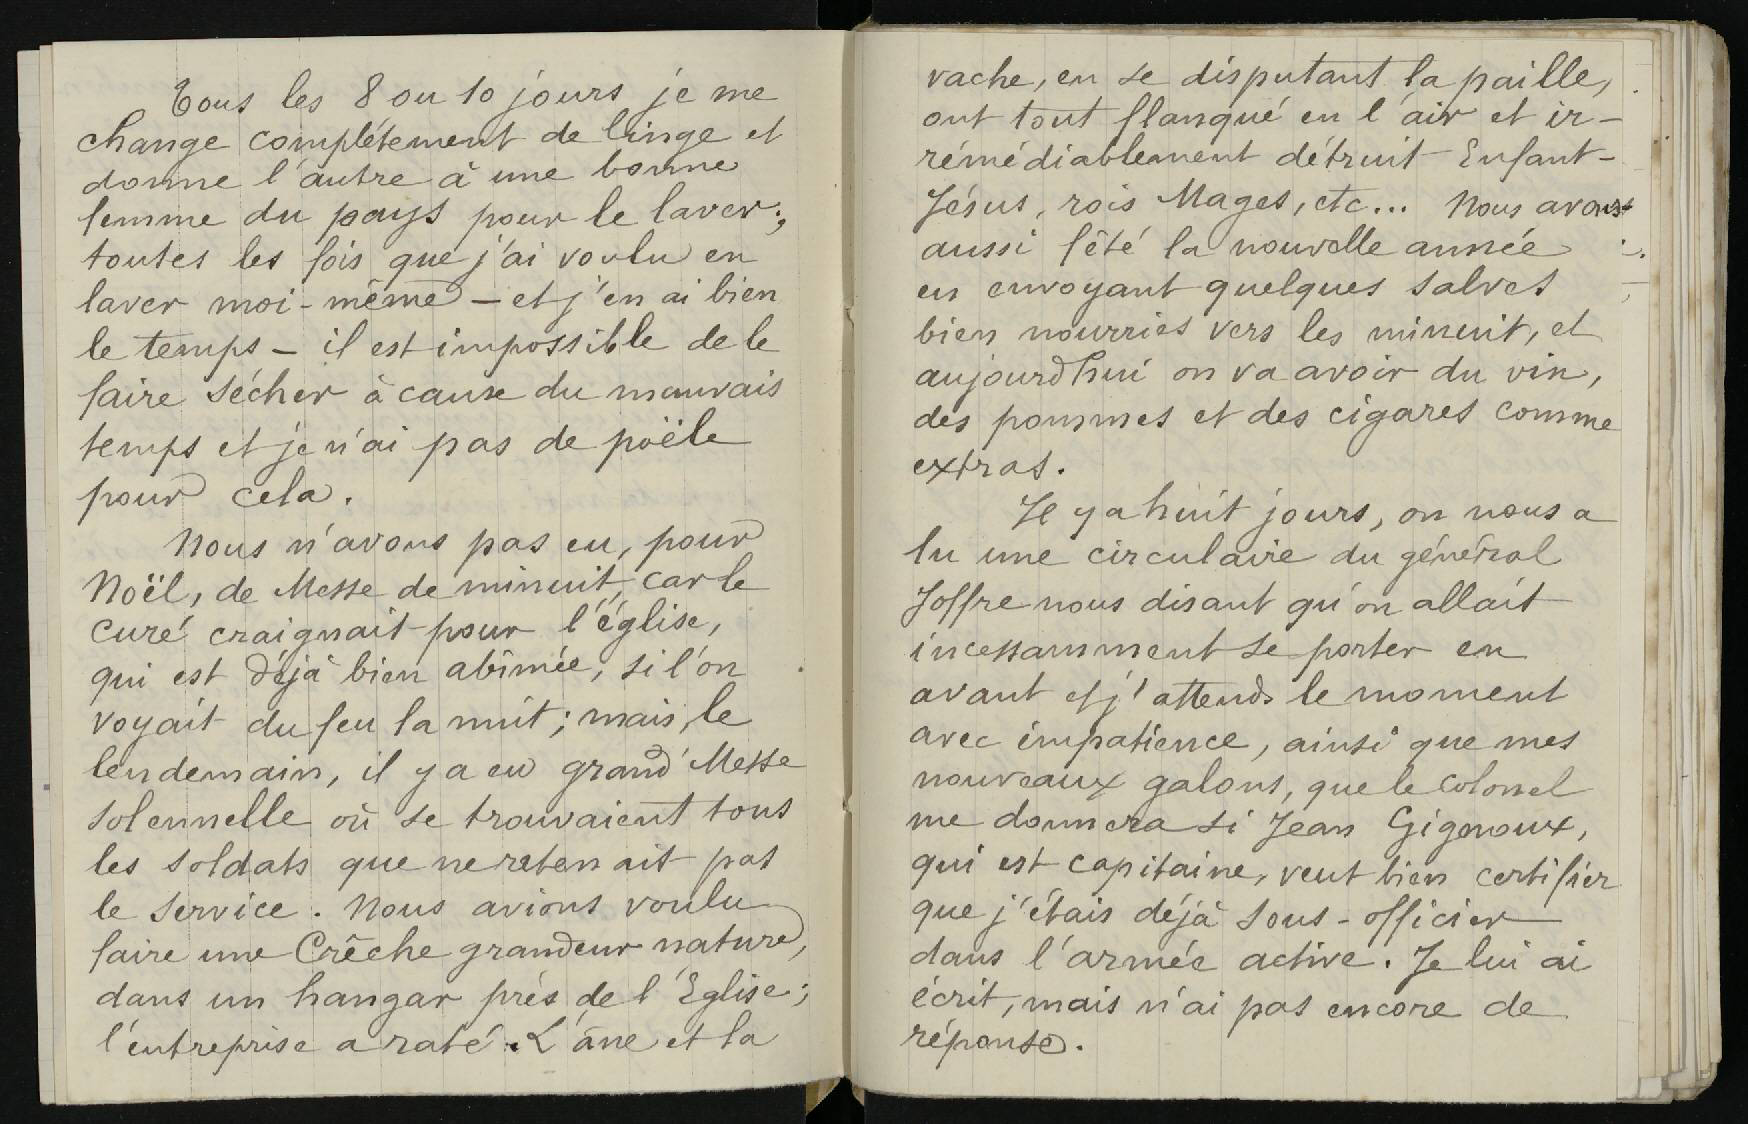 Tous les 8 ou 10 jours je me
change complétement de linge et
donne l'autre à une bonne
femme du pays pour le laver;
toutes les fois que j'ai voulu en
laver moi-même – et j'en ai bien
le temps – il est impossible de le
faire sécher à cause du mauvais
temps et je n'ai pas de poële
pour cela.
Nous n'avons pas eu, pour
Noël, de Messe de minuit, car le
curé craignait pour l'église,
qui est déjà bien abîmée, si l'on
voyait du feu la nuit; mais, le
lendemain, il y a eu grand'Messe
solennelle où se trouvaient tous
les soldats que ne retenait pas
le service. Nous avions voulu
faire une Crêche grandeur nature,
dans un hangar près de l'Eglise;
l'entreprise a raté. L'âne et la
vache, en se disputant la paille,
ont tout flanqué en l'air et ir-
rémédiablement détruit Enfant-
Jésus, rois Mages, etc... Nous avons
aussi fêté la nouvelle année
en envoyant quelques salves
bien nourries vers les minuit, et
aujourd'hui on va avoir du vin,
des pommes et des cigares comme
extras.
Il y a huit jours, on nous a
lu une circulaire du général
Joffre nous disant qu'on allait
incessamment se porter en
avant et j'attends le moment
avec impatience, ainsi que mes
nouveaux galons, que le colonel
me donnera si Jean Gigonoux,
qui est capitaine, veut bien certifier
que j'étais déjà sous-officier
dans l'armée active. Je lui ai
écrit, mais n'ai pas encore de
réponse.